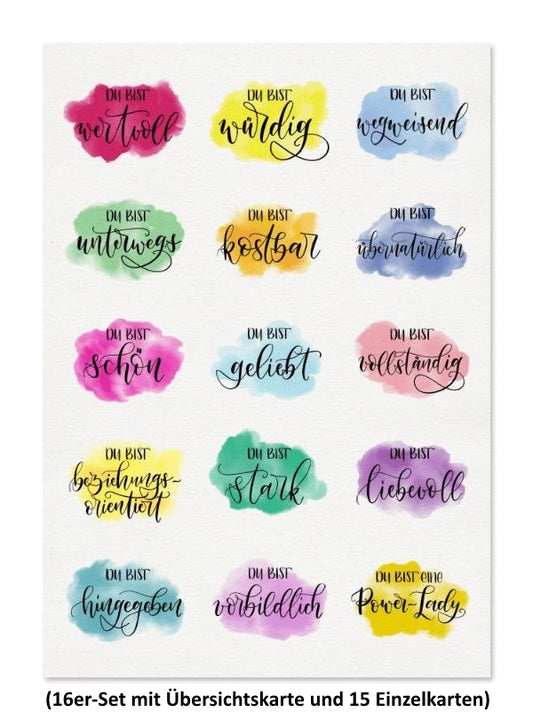 DU BIST
wertvoll
DU BIST
würdig
DU BIST
wegweisend
DU BIST
unterwegs
DU BIST
kostbar
DU BIST
übernatürlich
DU BIST
schön
DU BIST
geliebt
DU BIST
vollständig
DU BIST
beziehungs-
orientiert
DU BIST
stark
DU BIST
liebevoll
DU BIST
hingegeben
DU BIST
vorbildlich
DU BIST eine
Power-Lady
(16er-Set mit Übersichtskarte und 15 Einzelkarten)